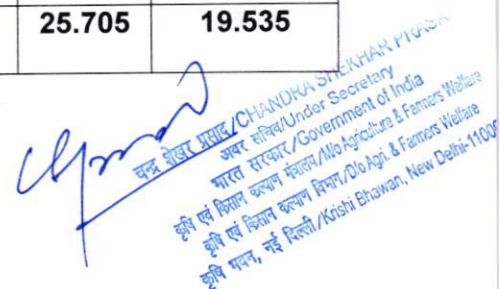 25.705 19.535
चन्द्र शेखर प्रसाद/CHANDRA SHEKHAR PRASA
अवर सचिव/Under Secretary
भारत सरकार/Government of India
कृषि एवं किसान कल्याण मंत्रालय/M/o Agriculture & Farmers Welfare
कृषि एवं किसान कल्याण विभाग/D/o Agri. & Farmers Welfare
कृषि भवन, नई दिल्ली/Krishi Bhawan, New Delhi-1100